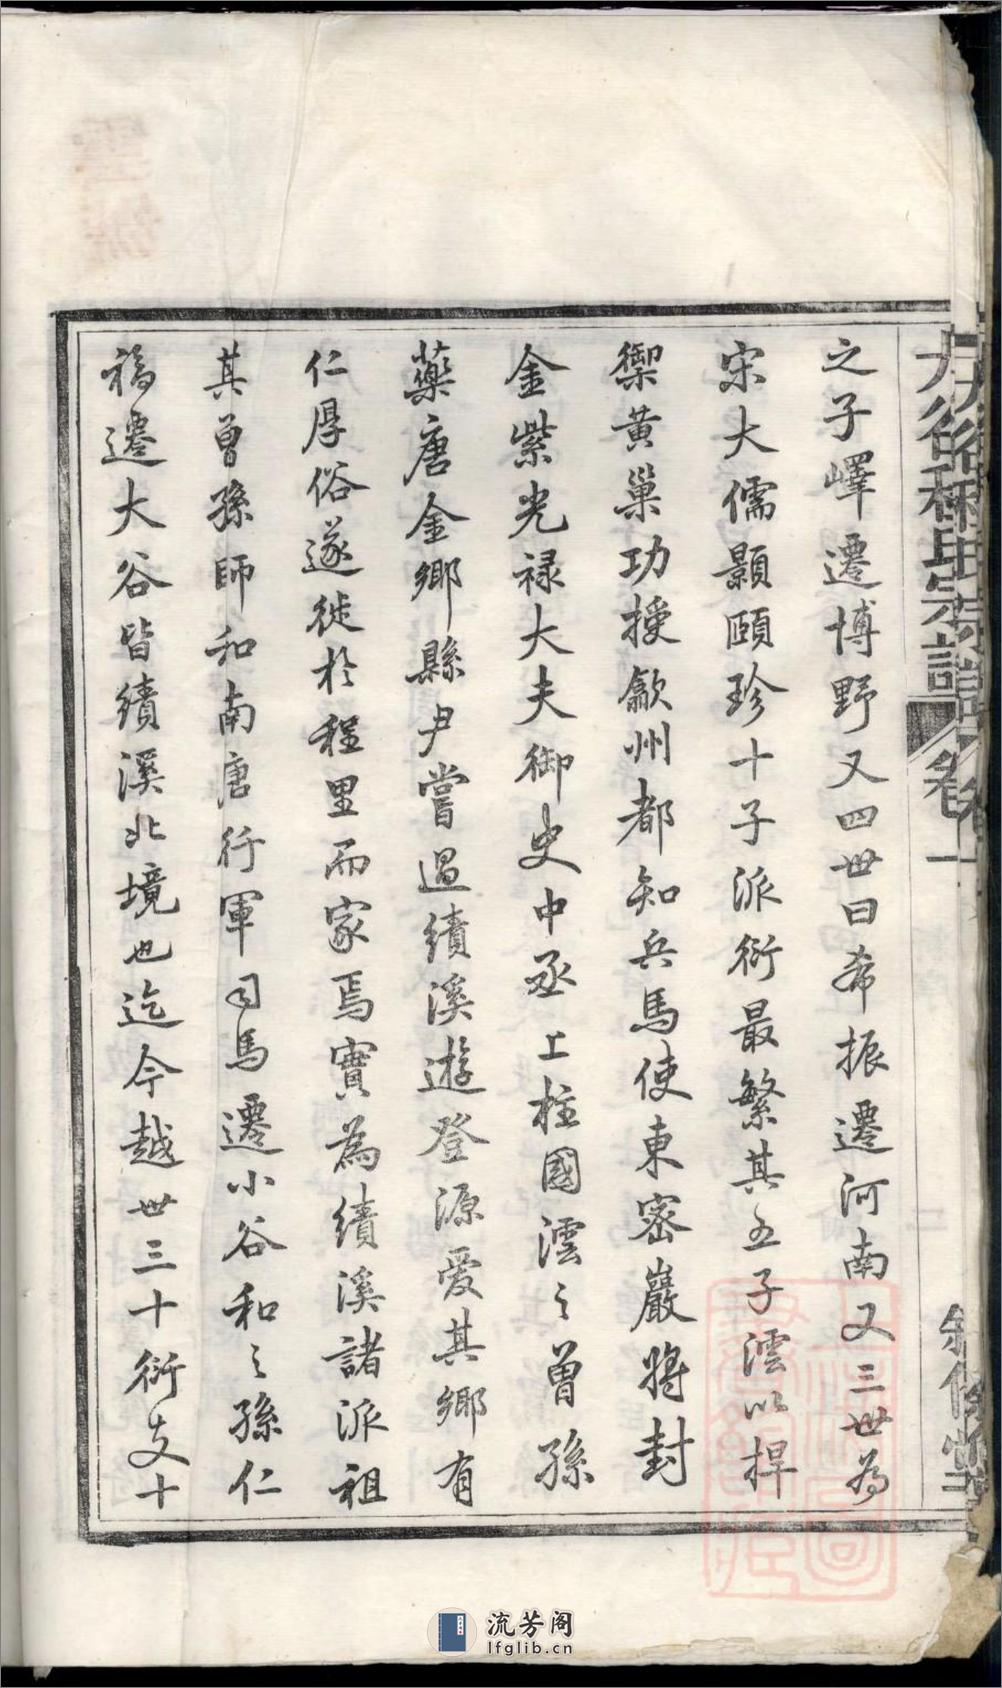 之子嶧遷博野又四世曰希振遷河南又三世為
宋大儒顥頤珍十子派衍最繁其五子澐以捍
禦黃巢功授歙州都知兵馬使東密巖將封
金紫光祿大夫御史中丞上柱國澐之曾孫
藥唐金鄉縣尹嘗過績溪遊登源愛其鄉有
仁厚俗遂徙於程里而家焉實為績溪諸派祖
其曾孫師和南唐行軍司馬遷小谷和之孫仁
福遷大谷皆績溪北境也迄今越世三十衍支十
程氏宗譜
卷一
流芳阁
lfglib.cn